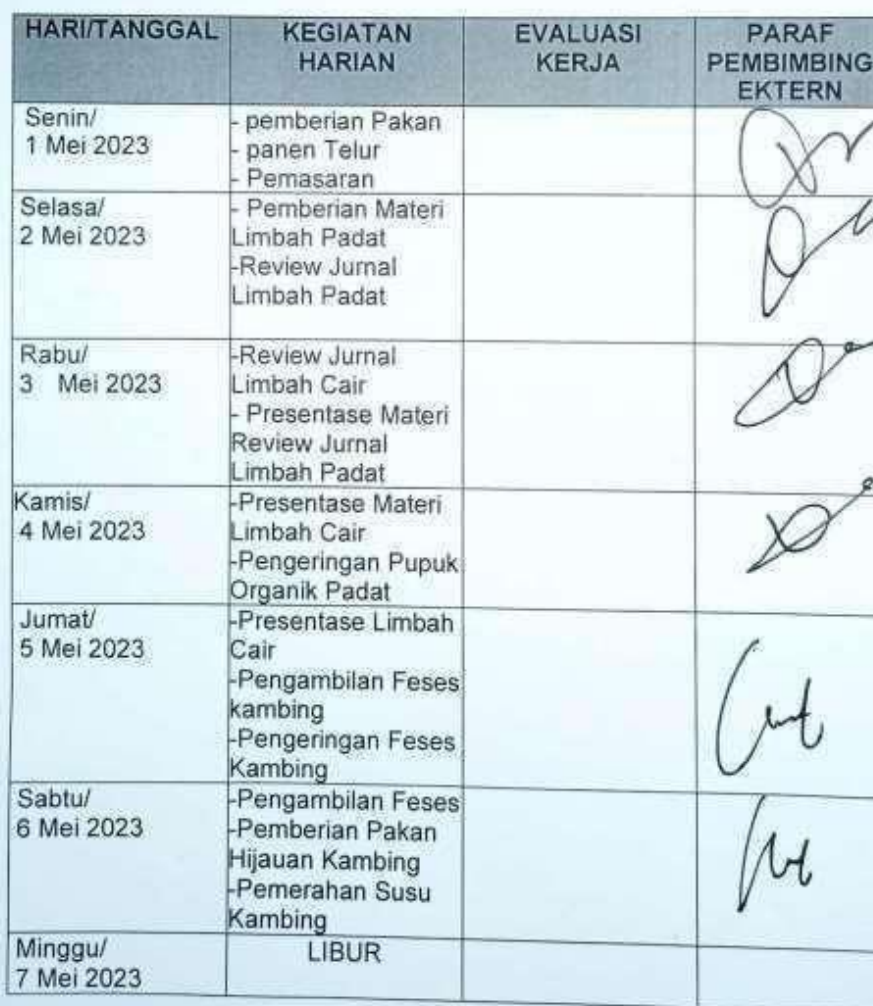 HARI/TANGGAL KEGIATAN HARIAN EVALUASI KERJA PARAF PEMBIMBING EKTERN
Senin/
1 Mei 2023
- pemberian Pakan
- panen Telur
- Pemasaran
Selasa/
2 Mei 2023
- Pemberian Materi
Limbah Padat
-Review Jurnal
Limbah Padat
Rabu/
3 Mei 2023
-Review Jurnal
Limbah Cair
- Presentase Materi
Review Jurnal
Limbah Padat
Kamis/
4 Mei 2023
-Presentase Materi
Limbah Cair
-Pengeringan Pupuk
Organik Padat
Jumat/
5 Mei 2023
-Presentase Limbah
Cair
-Pengambilan Feses
kambing
-Pengeringan Feses
Kambing
Sabtu/
6 Mei 2023
-Pengambilan Feses
-Pemberian Pakan
Hijauan Kambing
-Pemerahan Susu
Kambing
Minggu/
7 Mei 2023
LIBUR